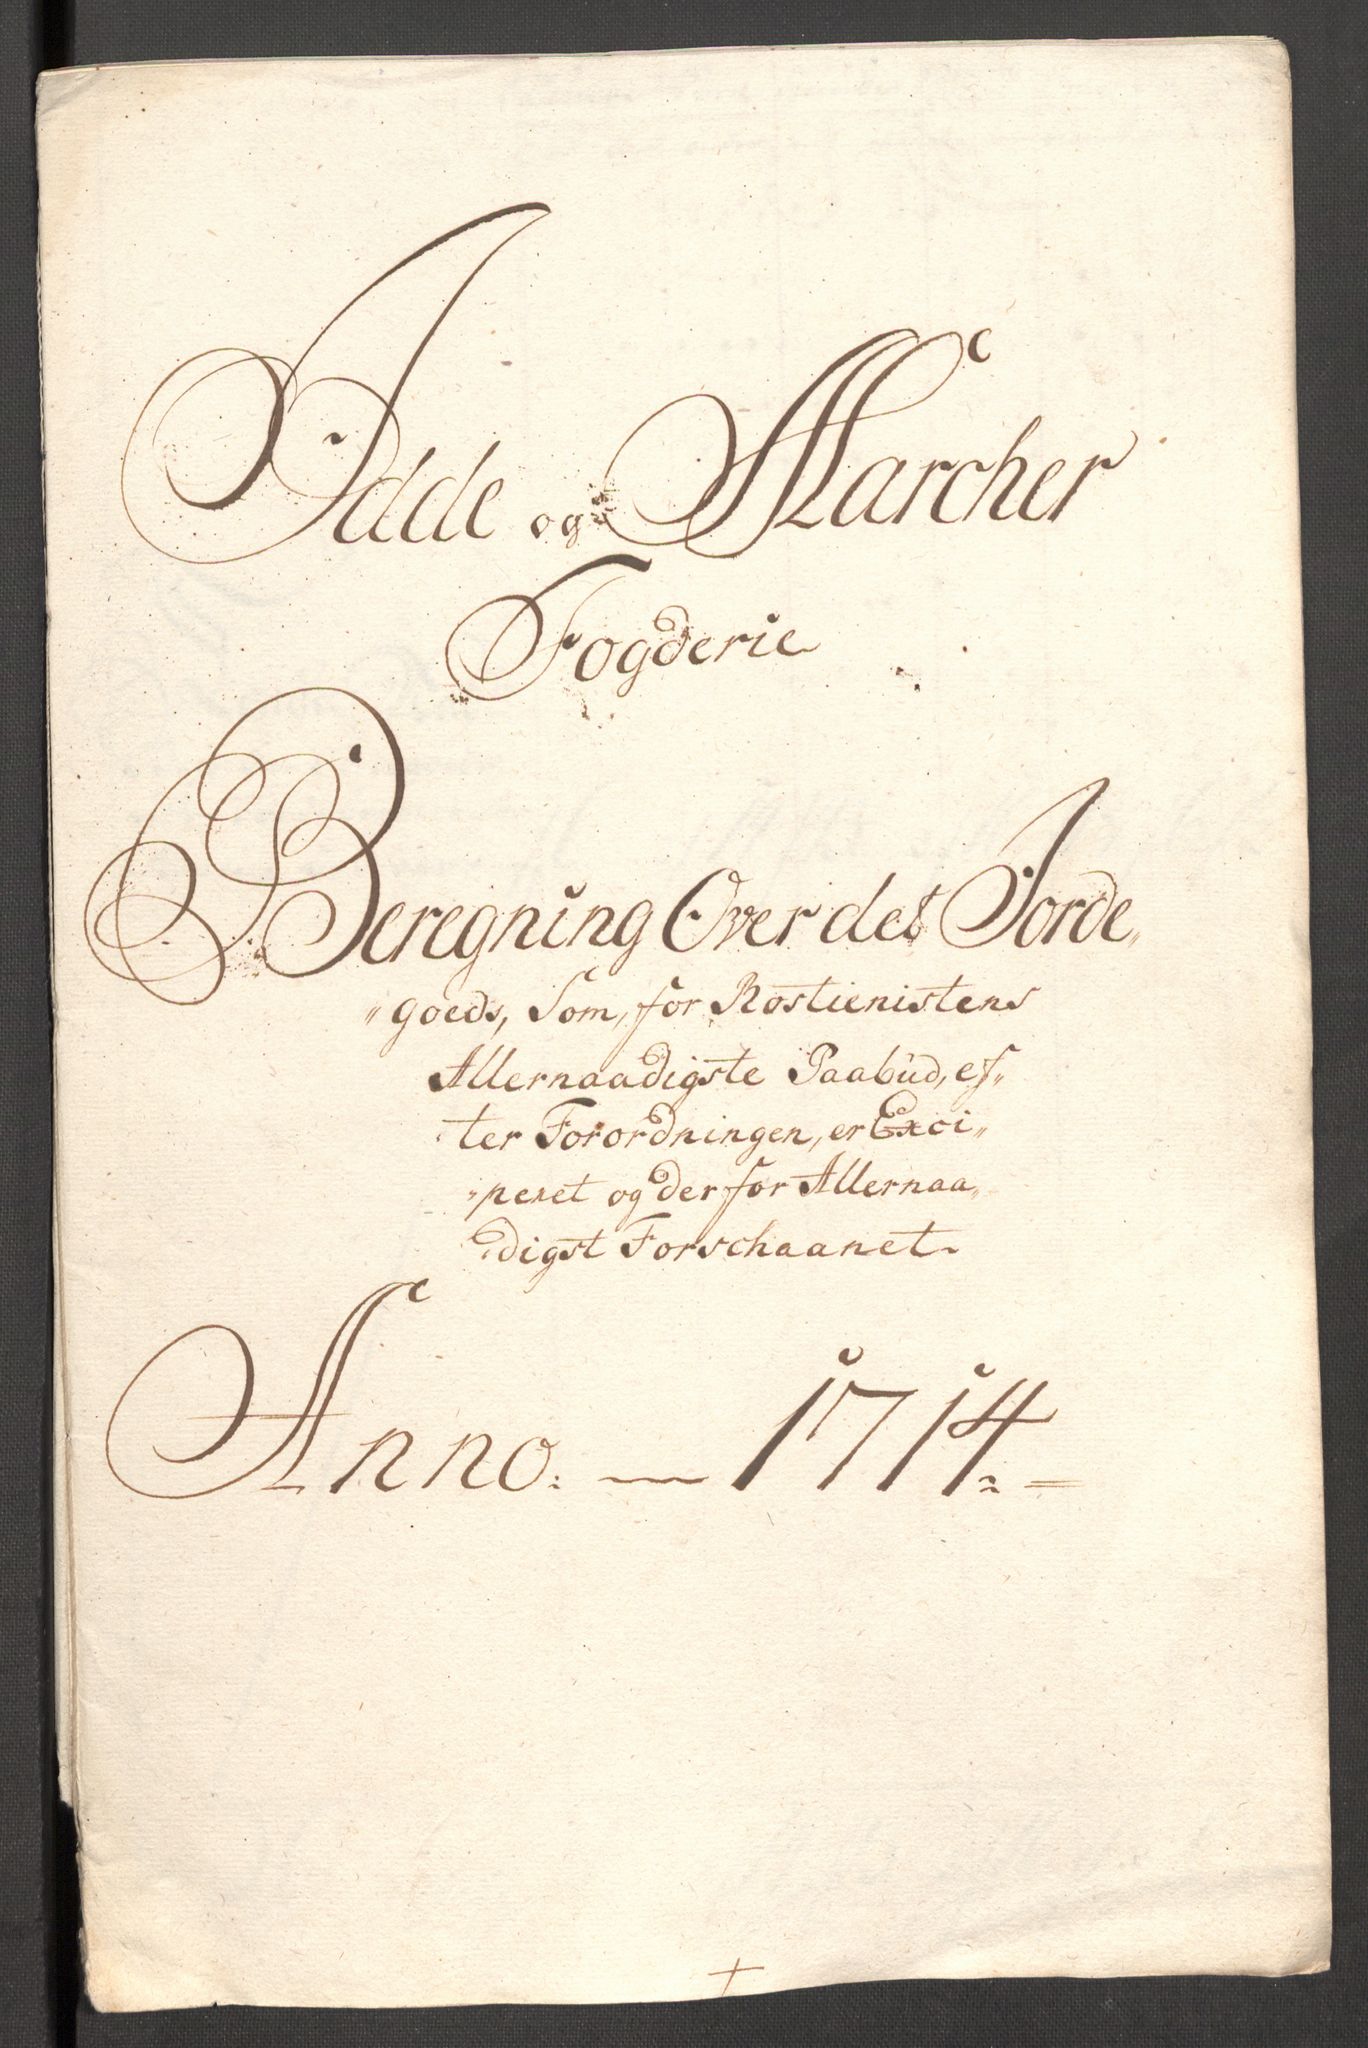 Idde og Marcher
Fogderie
Beregning Over det Jorde„
„goeds, Som, for Rostienistens
Allernaadigste Paabüd, ef„
ter Forordningen, er Exci„
„peret og derfor Allernaa„
digst Forschaanet.
Anno. — 1714. =